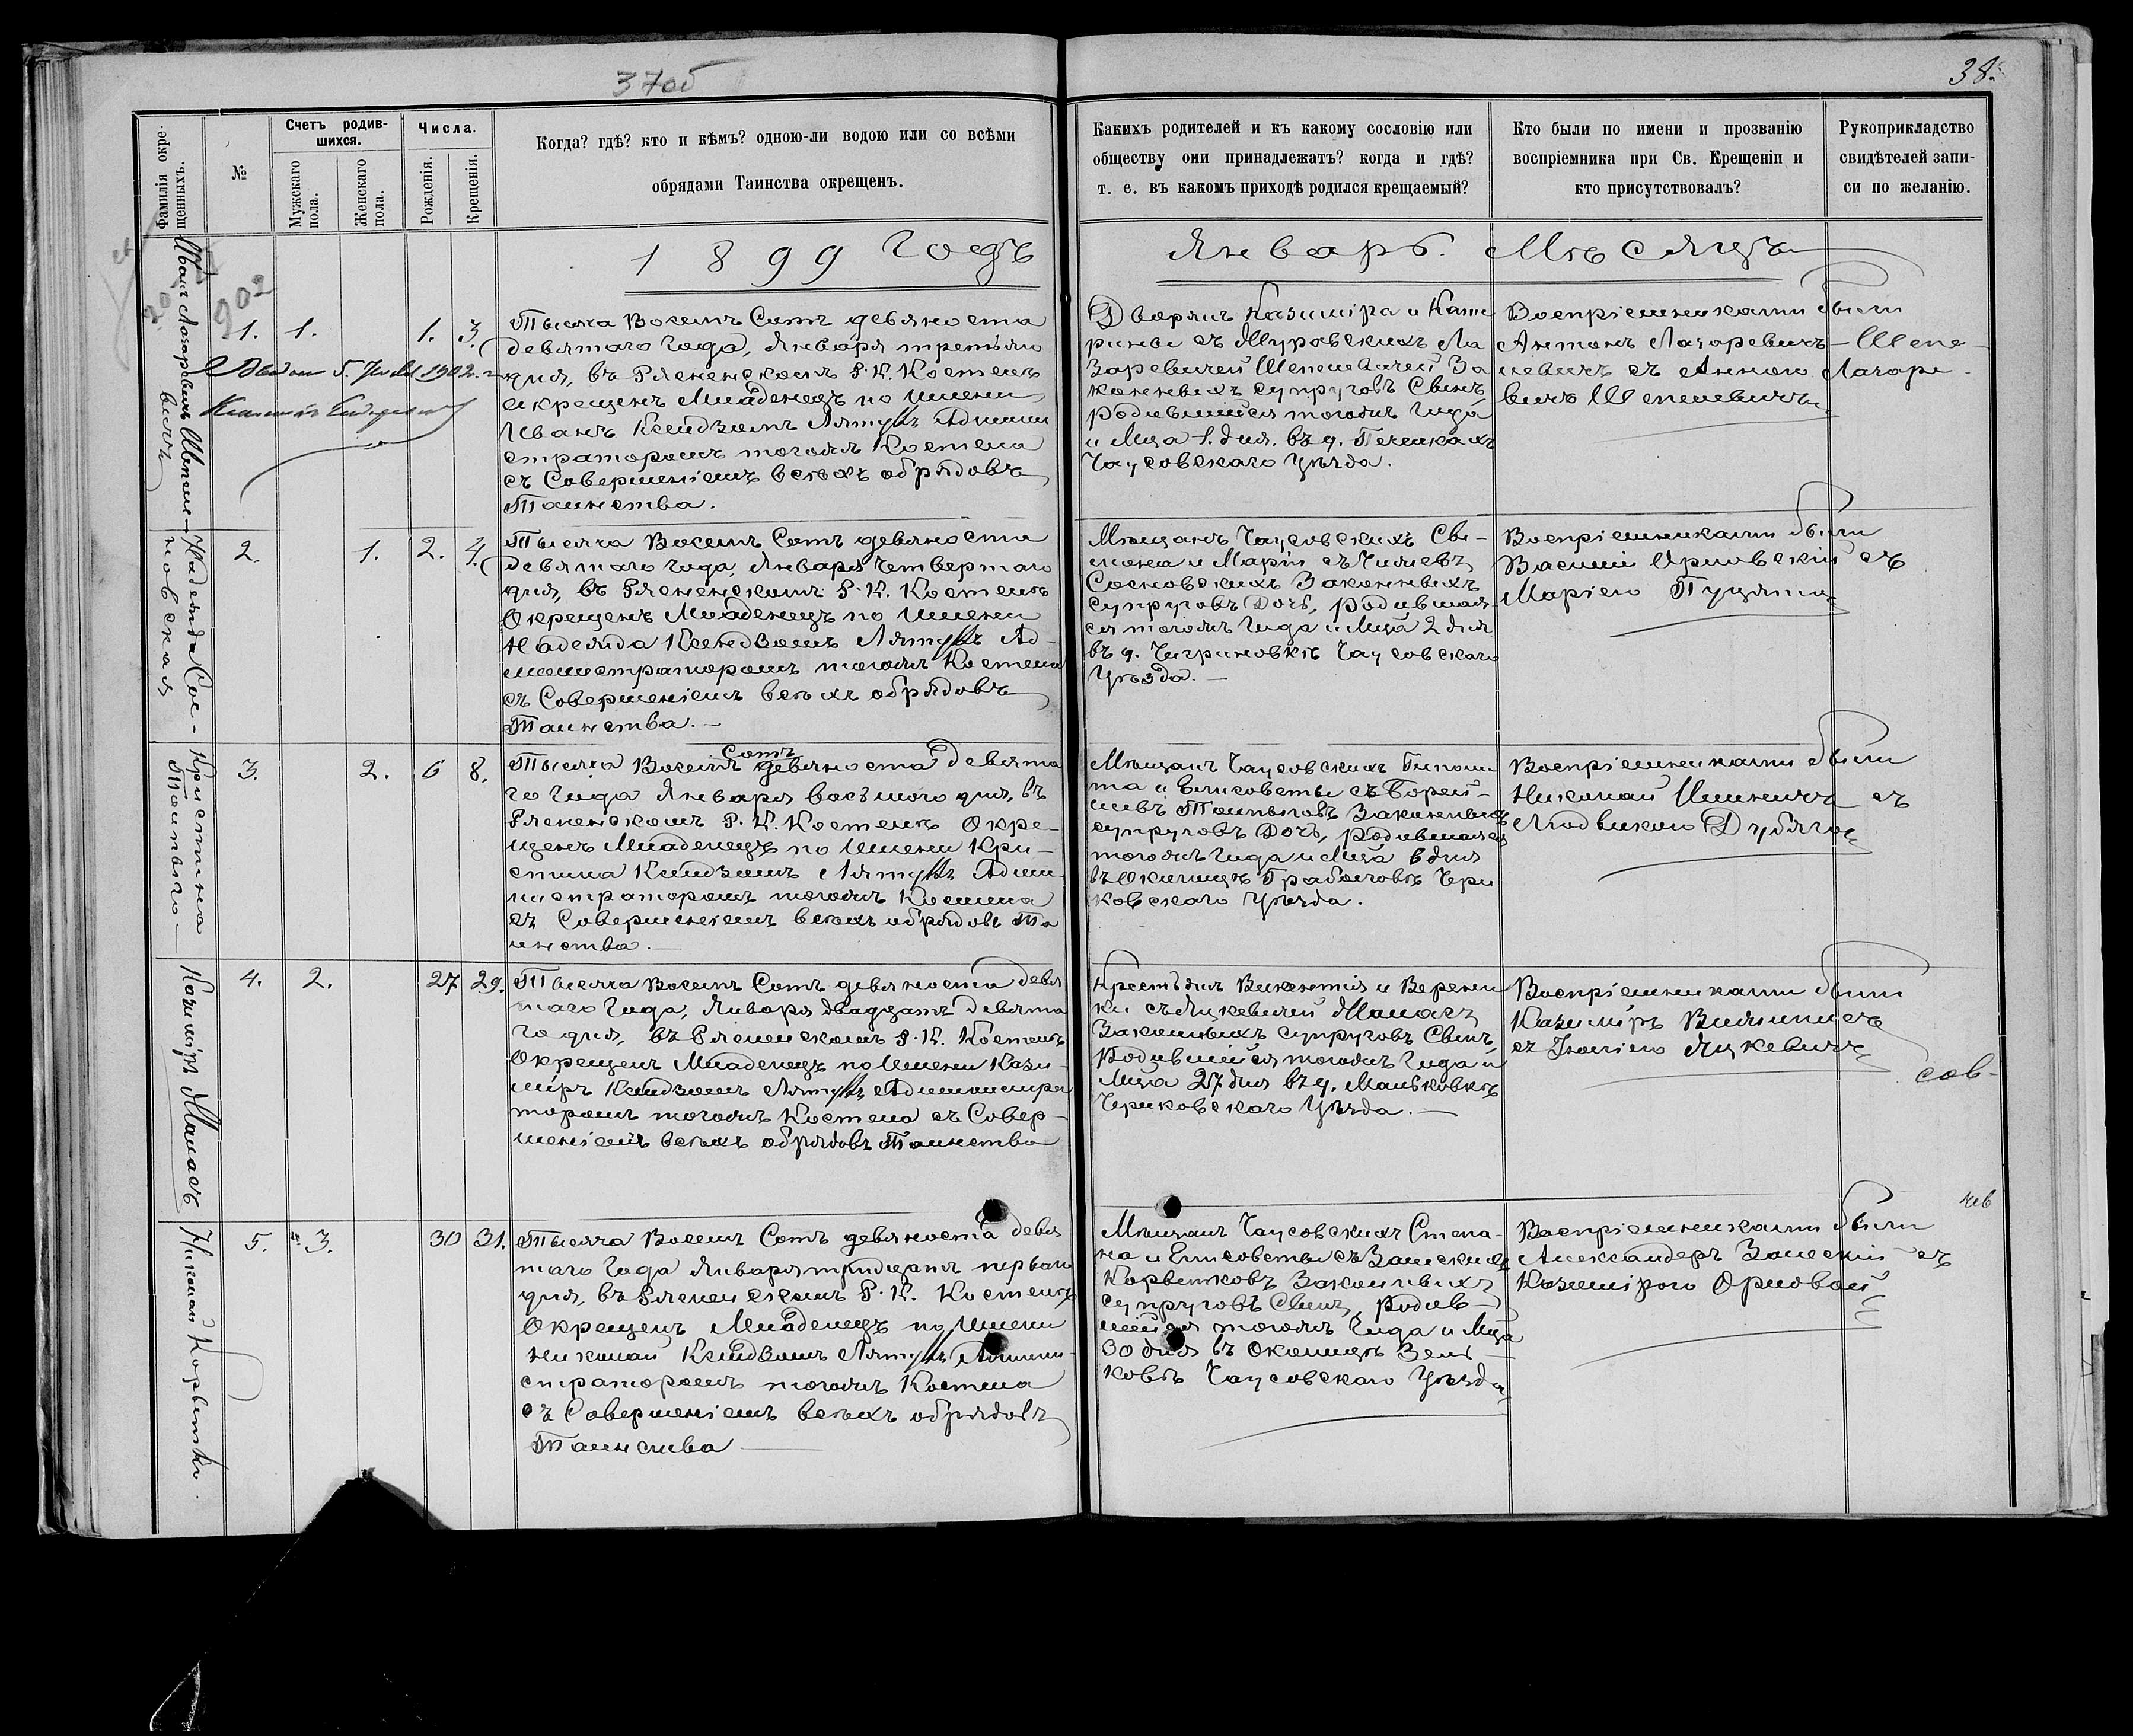 37об
38.
Фамилія окре-
щенныхъ.
№
Счетъ родив-
шихся.
Мужскаго
пола.
Женскаго
пола.
Числа.
Рожденія.
Крещенія.
Когда? гдѣ? кто и кѣмъ? одною-ли водою или со всѣми
обрядами Таинства окрещенъ.
Какихъ родителей и къ какому сословію или
обществу они принадлежатъ? когда и гдѣ?
т. е. въ какомъ приходѣ родился крещаемый?
Кто были по имени и прозванію
воспріемника при Св. Крещеніи и
кто присутствовалъ?
Рукоприкладство
свидѣтелей запи-
си по желанію.
1899 Годъ
Январь. Мѣсяцъ
Иванъ Лазаревичъ Шепеле-
вичъ
902
1. 1. 1. 3.
5. 1902 г.
Тысяча Восемъ Сотъ девяноста
девятаго Года, Января третьяго
дня, въ Рясненскомъ Р. К. Костелѣ
окрещенъ Младенецъ по Имени
Иванъ Ксендзомъ Админи
страторомъ тогожъ Костела
съ Совершеніемъ всѣхъ обрядовъ
Таинства.
Дворянъ Казиміра и Кате
рины съ Ла
заревичей Шепелевичей За
конныхъ супруговъ Сынъ
родившійся тогожъ Года
и Мца 1. дня. въ д.
Чаусовскаго Уѣзда.
Воспріемниками были
Антонъ Лазаревичъ-Шепе-
левичъ съ Анною Лазаре-
вичъ Шепелевичъ
Надежда Сос-
новская
2. 1. 2. 4.
Тысяча Восемъ Сотъ девяноста
девятаго Года, Января Четвертаго
дня, въ Рясненскомъ Р. К. Костелѣ
Окрещенъ Младенецъ по Имени
Надежда Ксендзомъ Ад-
министраторомъ тогожъ Костела
съ Совершеніемъ всѣхъ обрядовъ
Таинства.-
Мѣщанъ Чаусовскихъ Си-
мона и Маріи съ
Сосновскихъ Законныхъ
супруговъ Дочь, родившая-
ся тогожъ Года и Мца 2 дня
въ д. Чигриновкѣ Чаусовскаго
Уѣзда.-
Воспріемниками были
Василій съ
Маріею
Кристина
3. 2. 6 8.
Тысяча Восемъ Сотъ девяноста девята
го Года Января восьмого дня, въ
Рясненскомъ Р. К. Костелѣ Окре-
щенъ Младенецъ по Имени Кри-
стина Ксендзомъ Адми-
нистраторомъ тогожъ Костела
съ Совершеніемъ всѣхъ обрядовъ Та
инства.-
Мѣщанъ Чаусовскихъ Иполи
та и Елисаветы съ
Законныхъ
супруговъ Дочь, родившаяся
тогожъ Года и Мца 6 дня
въ Околицѣ Чери
ковскаго Уѣзда.
Воспріемниками были
Николай съ
Людвикою
Казиміръ
4. 2. 27 29.
Тысяча Восемъ Сотъ девяноста девя
таго Года, Января двадцать девята
го дня, въ Рясненскомъ Р. К. Костелѣ
Окрещенъ Младенецъ по Имени Кази-
міръ Ксендзомъ Администра
торомъ тогожъ Костела съ Совер-
шеніемъ всѣхъ обрядовъ Таинства
Крестьянъ Викентія и Верони
ки съ Яцкевичей
Законныхъ супруговъ Сынъ,
Родившійся тогожъ Года и
Мца 27 дня въ д. Маньковкѣ
Чериковскаго Уѣзда.-
Воспріемниками были
Казиміръ
съ Яцкевичъ
сов-
Николай Корветко.
5. 3. 30 31.
Тысяча Восемъ Сотъ девяноста девя
таго Года Января тридцать перваго
дня, въ Рясненскомъ Р. К. Костелѣ
Окрещенъ Младенецъ по Имени
Николай Ксендзомъ Админи-
страторомъ тогожъ Костела
съ Совершеніемъ всѣхъ обрядовъ
Таинства
Мѣщанъ Чаусовскихъ Степа-
на и Елисаветы съ Залескихъ
Корветковъ Законныхъ
супруговъ Сынъ, родив-
шійся тогожъ Года и Мца
30 дня въ Околицѣ
Чаусовскаго Уѣзда
Воспріемниками были
Александеръ Залескій съ
Казимірою